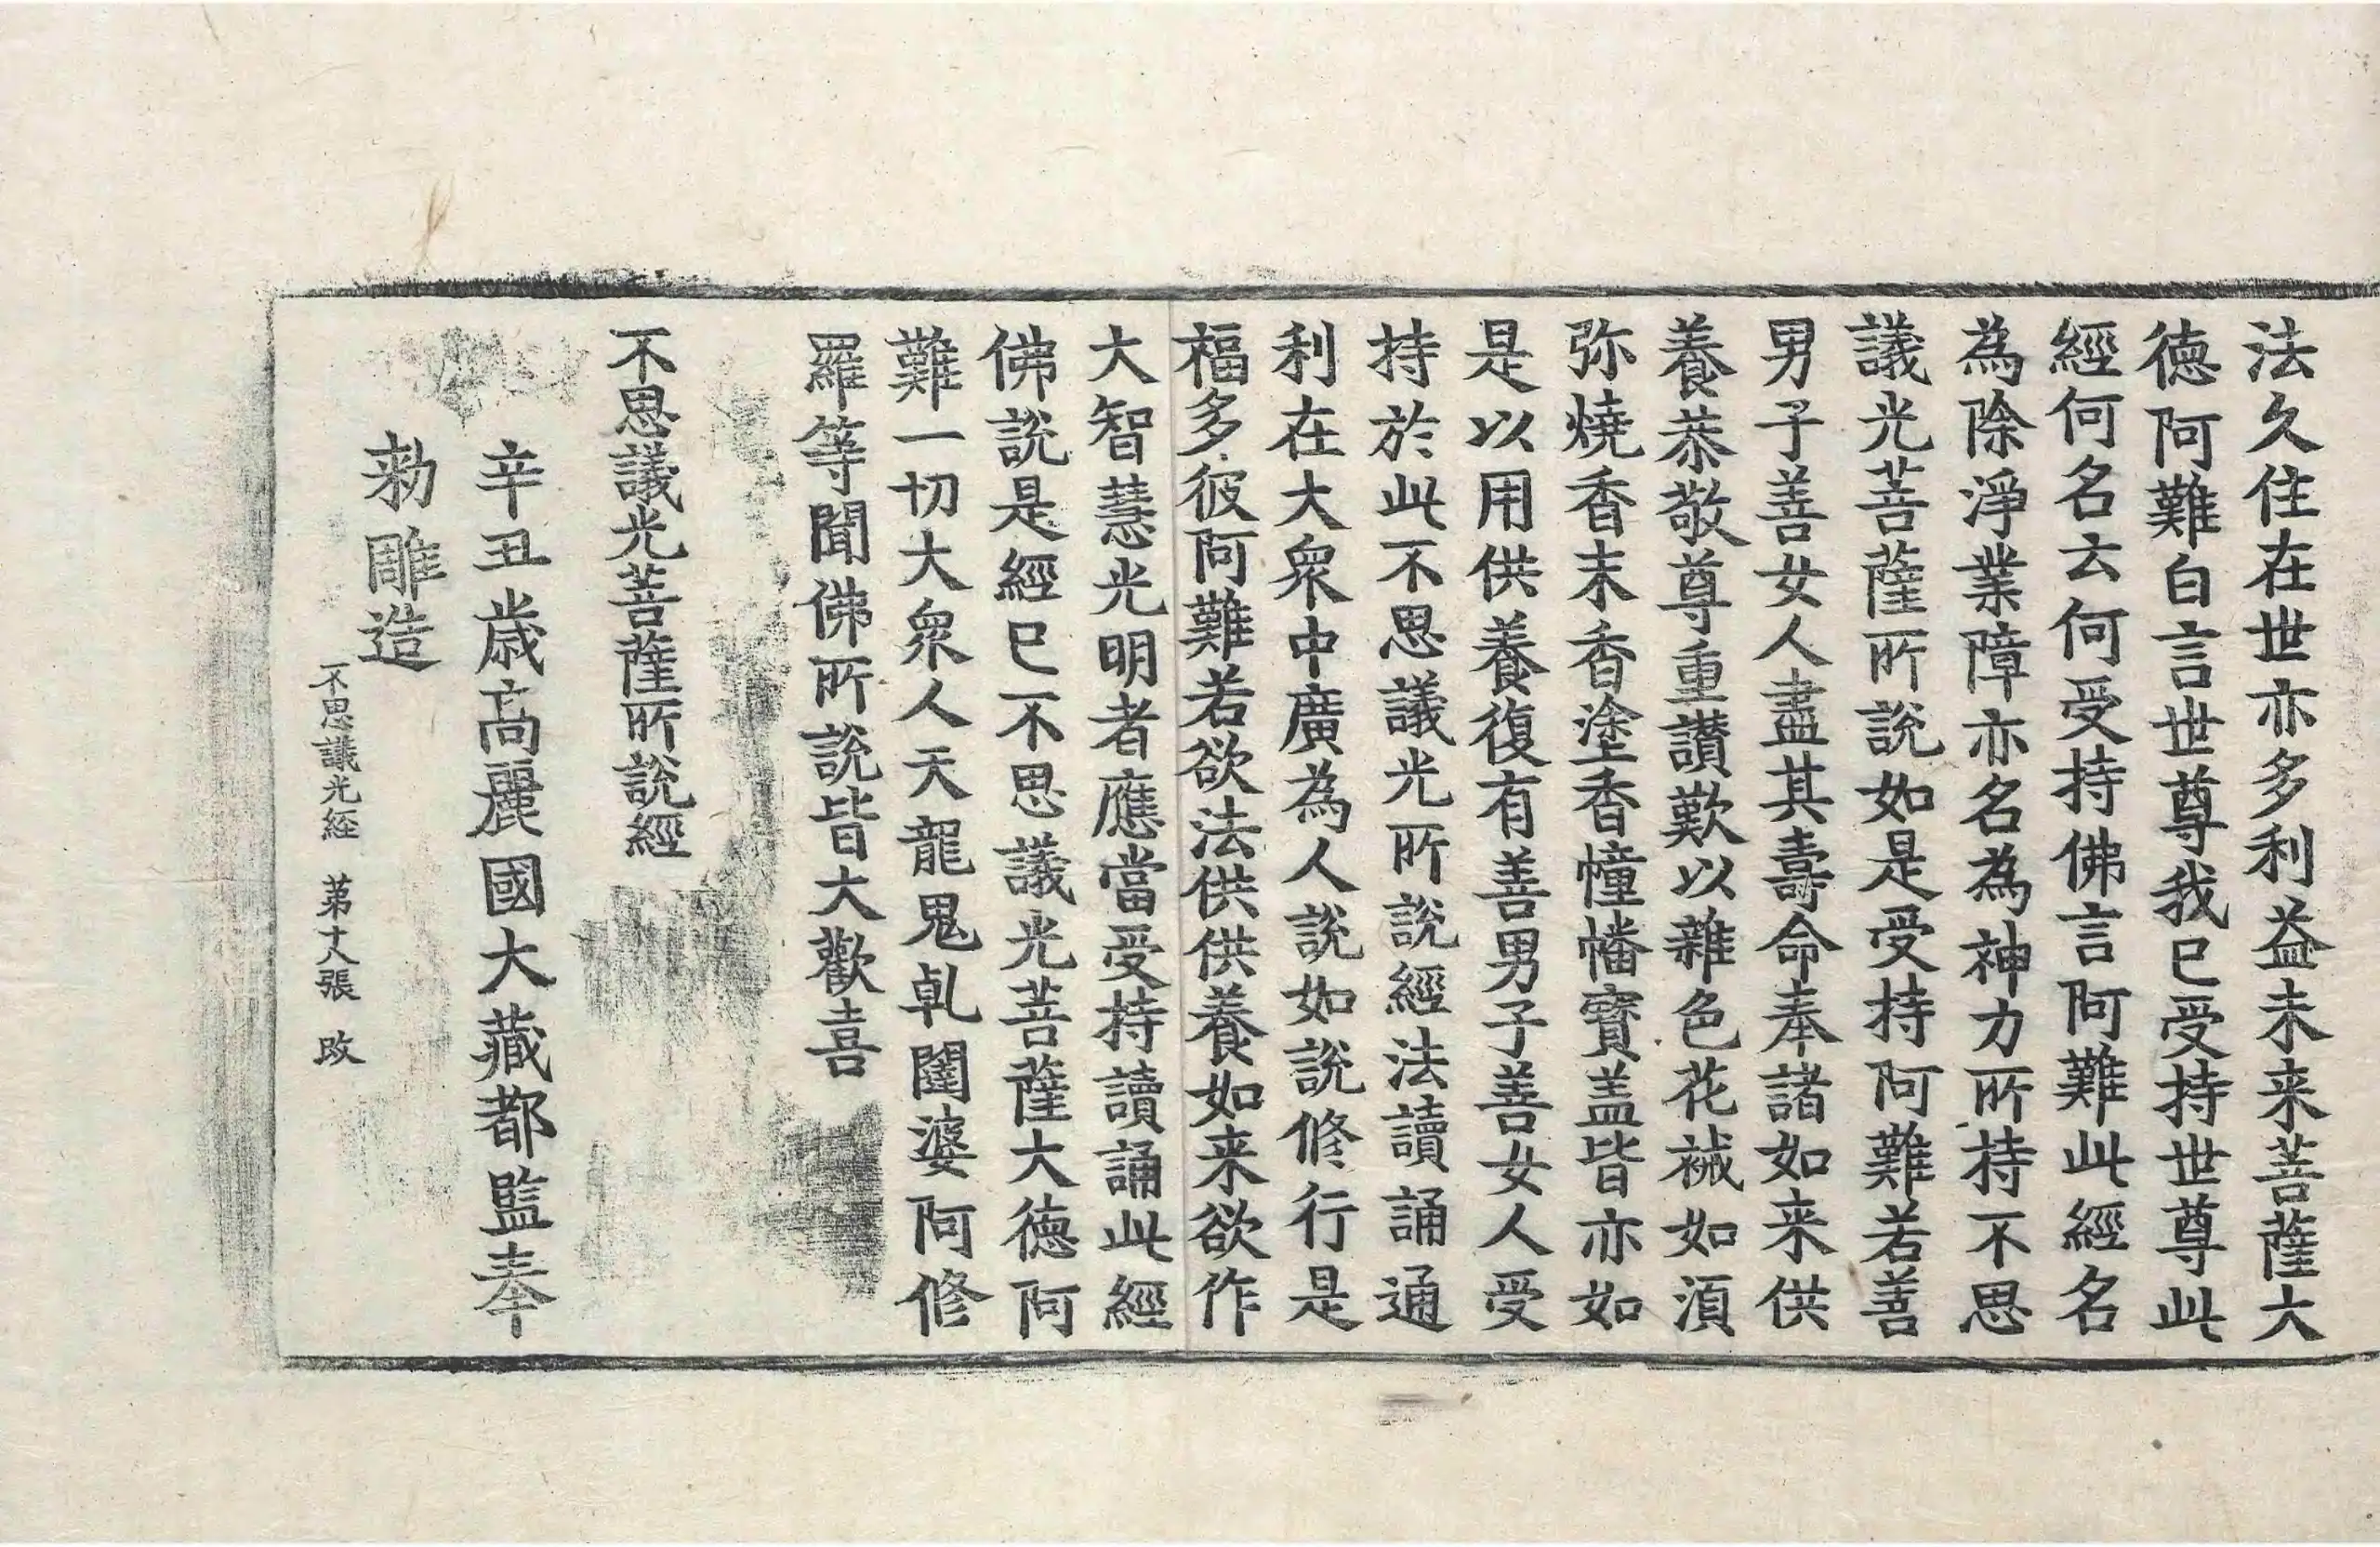 法久住在世亦多利益未来菩薩大
德阿難白言世尊我已受持世尊此
經何名云何受持佛言阿難此經名
為除淨業障亦名為神力所持不思
議光菩薩所說如是受持阿難若善
男子善女人盡其壽命奉諸如来供
養恭敬尊重讃歎以雜色花裓如湏
弥燒香末香塗香幢幡寶盖皆亦如
是以用供養復有善男子善女人受
持於此不思議光所說經法讀誦通
利在大衆中廣為人說如說修行是
福多彼阿難若欲法供供養如来欲作
大智慧光明者應當受持讀誦此經
佛說是經已不思議光菩薩大德阿
難一切大衆人天龍鬼乹闥婆阿修
羅等聞佛所說皆大歡喜
不思議光菩薩所說經
辛丑歲高麗國大藏都監奉
勑雕造
不思議光経 苐十八張 改